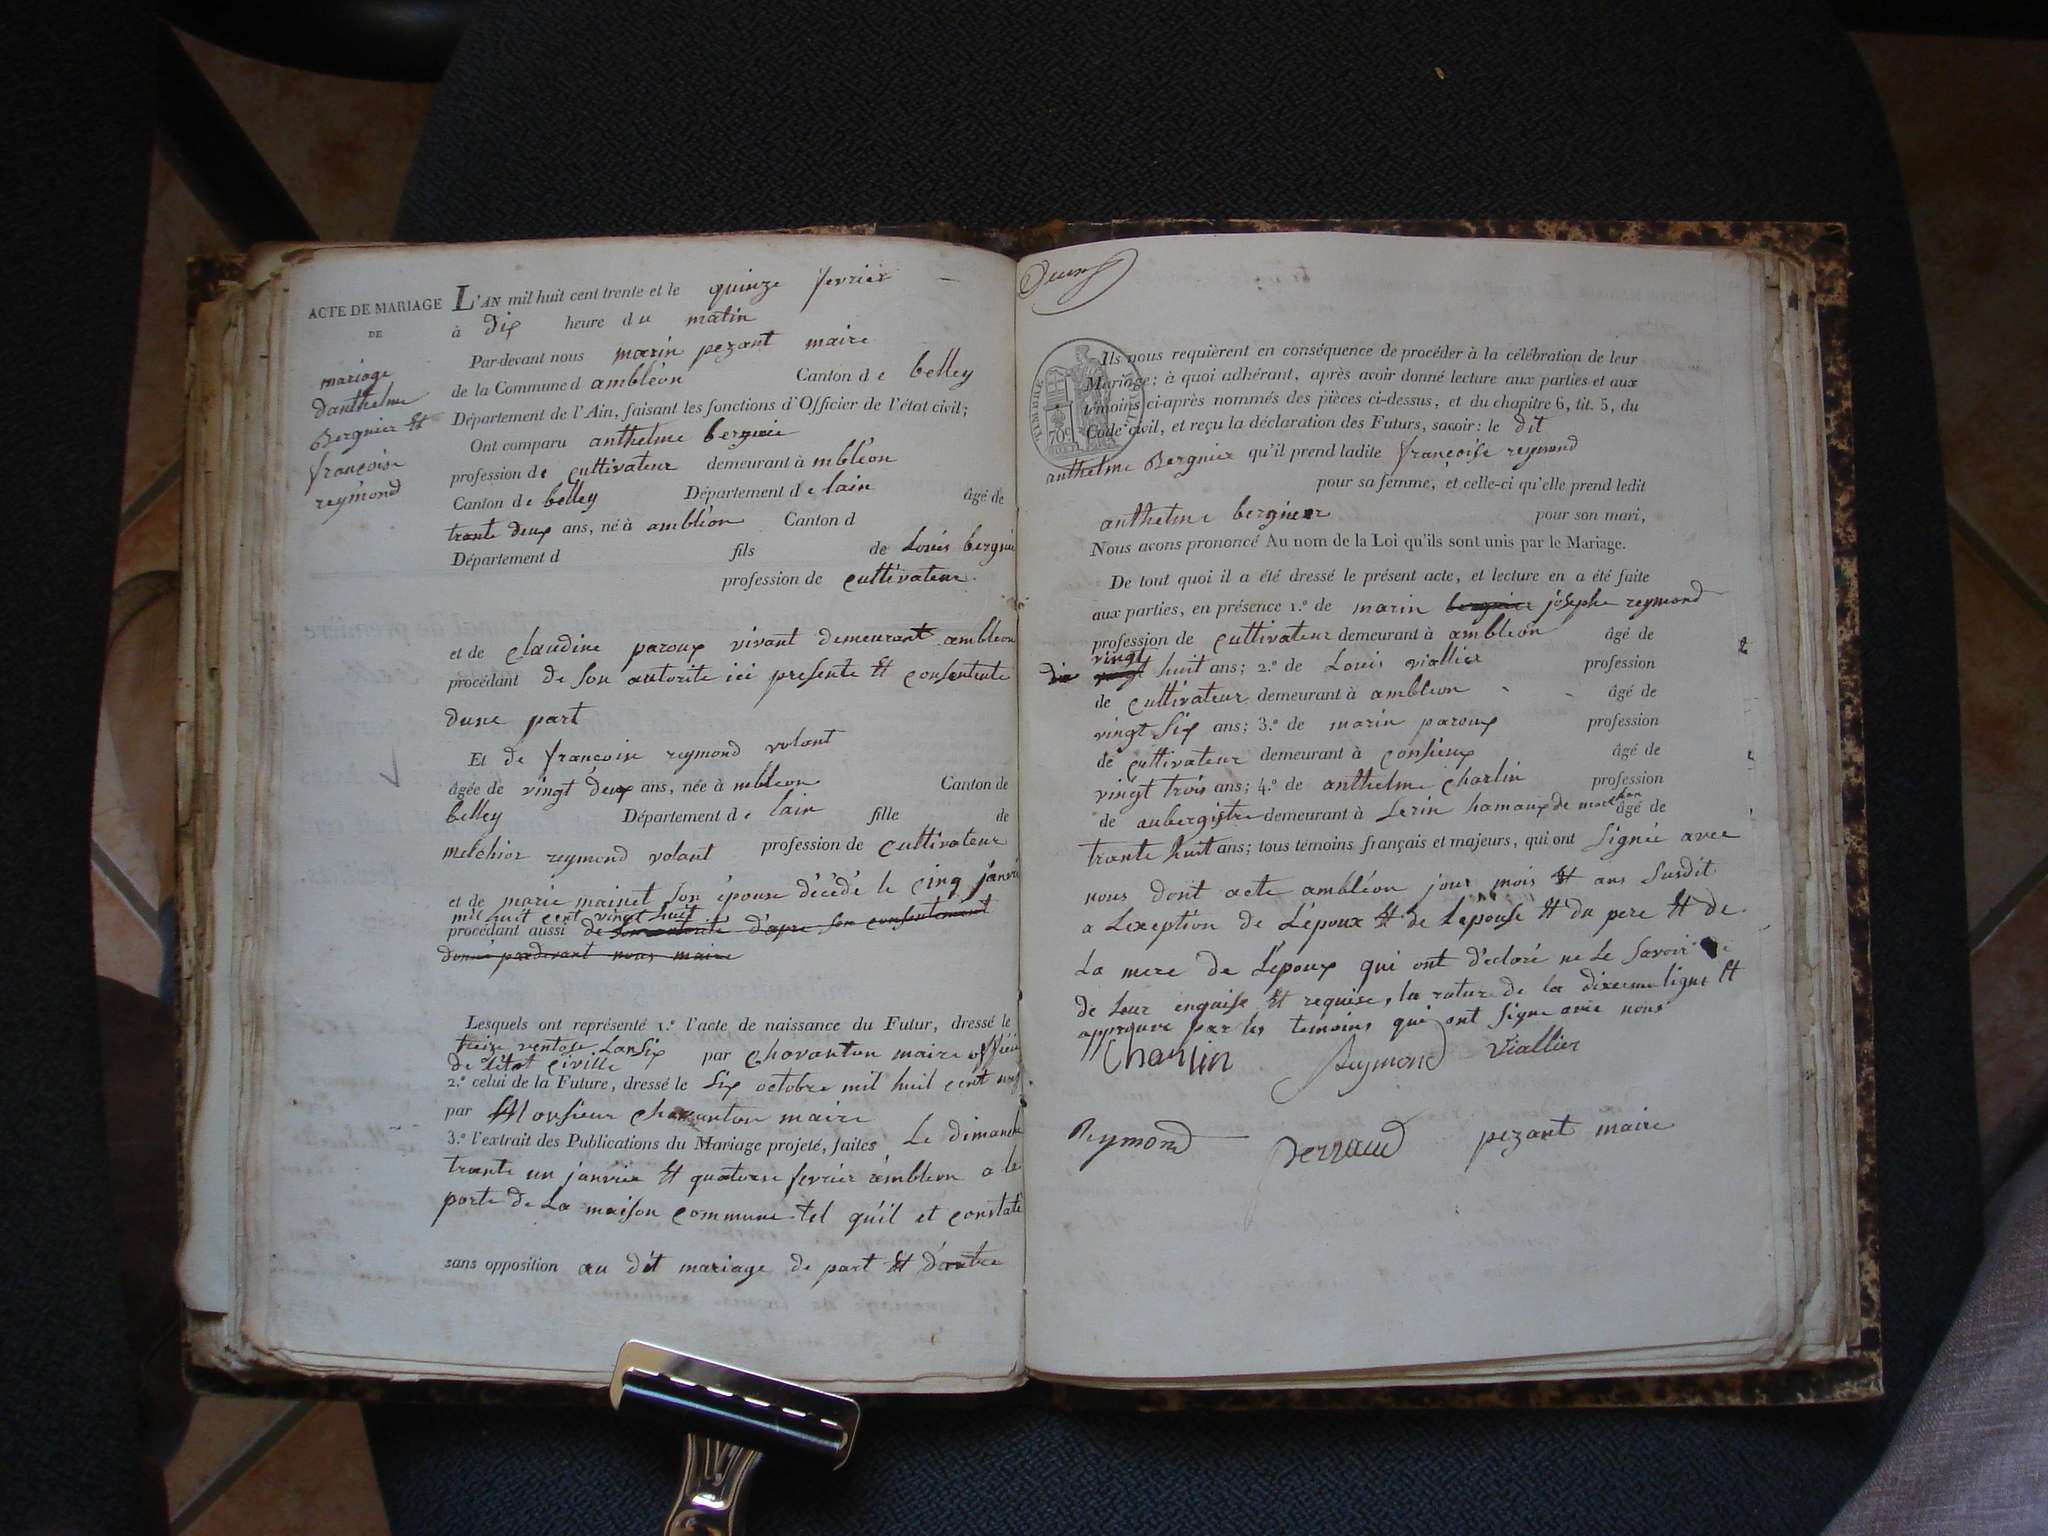 ACTE DE MARIAGE
DE
mariage
danthelme
Bergnier et
françoise
reymond
L'AN mil huit cent trente et le quinze fevrier
à dix heure du matin
Par-devant nous marin pezant maire
de la Commune d ambléon Canton de belley
Département de l'Ain, faisant les fonctions d'Officier de l'état civil;
Ont comparu anthelme bergnier
profession de cultivateur demeurant à mbléon
Canton de belley Département de lain âgé de
trante deux ans, né à ambléon Canton d
Département d fils de Louis bergnier
profession de cultivateur.
et de claudine paroux vivant demeurant ambleon
procédant de son autorite ici presente et consentente
dune part
Et de françoise reymond volant
âgée de vingt deux ans, née à mbleon Canton de
belley Département de lain fille de
melchior reymond volant profession de cultivateur
et de marie mainet son épouse décédé le cinq janvi
mil huit cent vingt huit
procédant aussi de son autorité d'apre son consentement
donné pardevant nous maire
Lesquels ont représenté 1.º l'acte de naissance du Futur, dressé le
treize ventose Lansix par chavanton maire officie
de létat civille
2.º celui de la Future, dressé le six octobre mil huit cent
par Monsieur chavanton maire
3.º l'extrait des Publications du Mariage projeté, faites Le dimanche
trante un janvier et quatorse fevrier ambleon a la
porte de La maison commune tel qu'il et constate
sans opposition au dit mariage de part et dautre
TIMBRE
70
Ils nous requièrent en conséquence de procéder à la célébration de leur
Mariage; à quoi adhérant, après avoir donné lecture aux parties et aux
témoins ci-après nommés des pièces ci-dessus, et du chapitre 6, tit. 5, du
Code civil, et reçu la déclaration des Futurs, savoir: le dit
anthelme Bergnier qu'il prend ladite françoise reymond
pour sa femme, et celle-ci qu'elle prend ledit
anthelme bergnier pour son mari,
Nous avons prononcé Au nom de la Loi qu'ils sont unis par le Mariage.
De tout quoi il a été dressé le présent acte, et lecture en a été faite
aux parties, en présence 1.º de marin bergnier joseph reymond
profession de cultivateur demeurant à ambleon âgé de
vingt
vingt huit ans; 2.º de Louis viallier profession
de cultivateur demeurant à ambleon âgé de
vingt six ans; 3.º de marin paroux profession
de cultivateur demeurant à consieux âgé de
vingt trois ans; 4.º de anthelme charlin profession
de aubergistre demeurant à Serin hamaux de âgé de
trante huit ans; tous témoins français et majeurs, qui ont signée avec
nous dont acte ambléon jour mois et ans susdit
a Lexeption de Lépoux et de Lepouse et du pere et de
La mere de Lépoux qui ont déclaré ne Le savoir
de Leur enquise et requise, la rature de la dixieme ligne et
approuvé par les temoins qui ont signe avec nous
Charlin Reymond Viallier
Reymond pezant maire